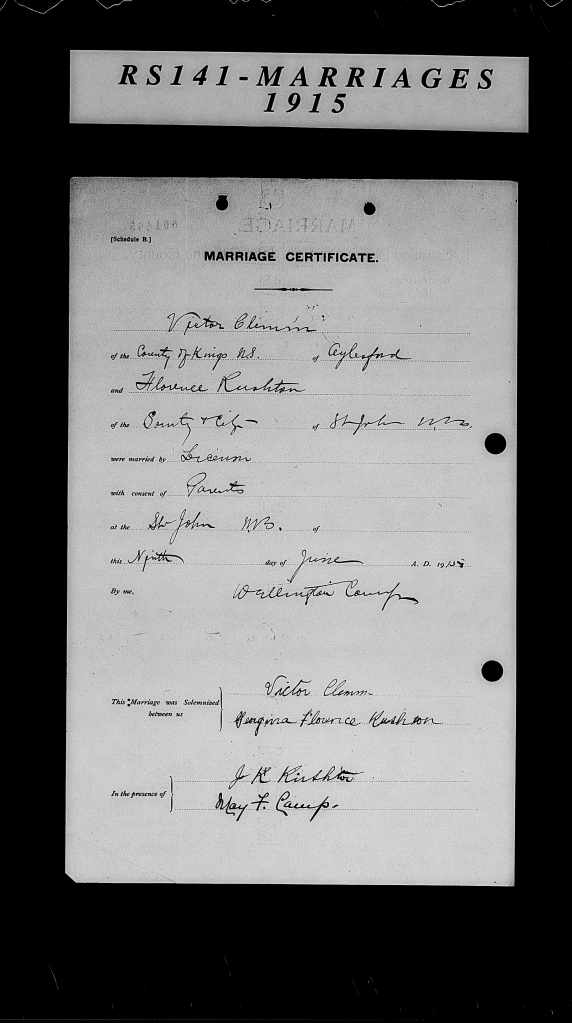 RS141-MARRIAGES
1915
[Schedule B.]
MARRIAGE CERTIFICATE.
Victor Clemm
of the County of Kings N.S. of Aylesford
and Florence Rushton
of the County & City of St John N.B.
were married by License
with consent of Parents
at the St John N.B. of
this Ninth day of June A. D. 1915
By me, Wellington Camp
This Marriage was Solemnised
between us
Victor Clemm
Georgina Florence Rushton
In the presence of
J K Rushton
May F. Camp.